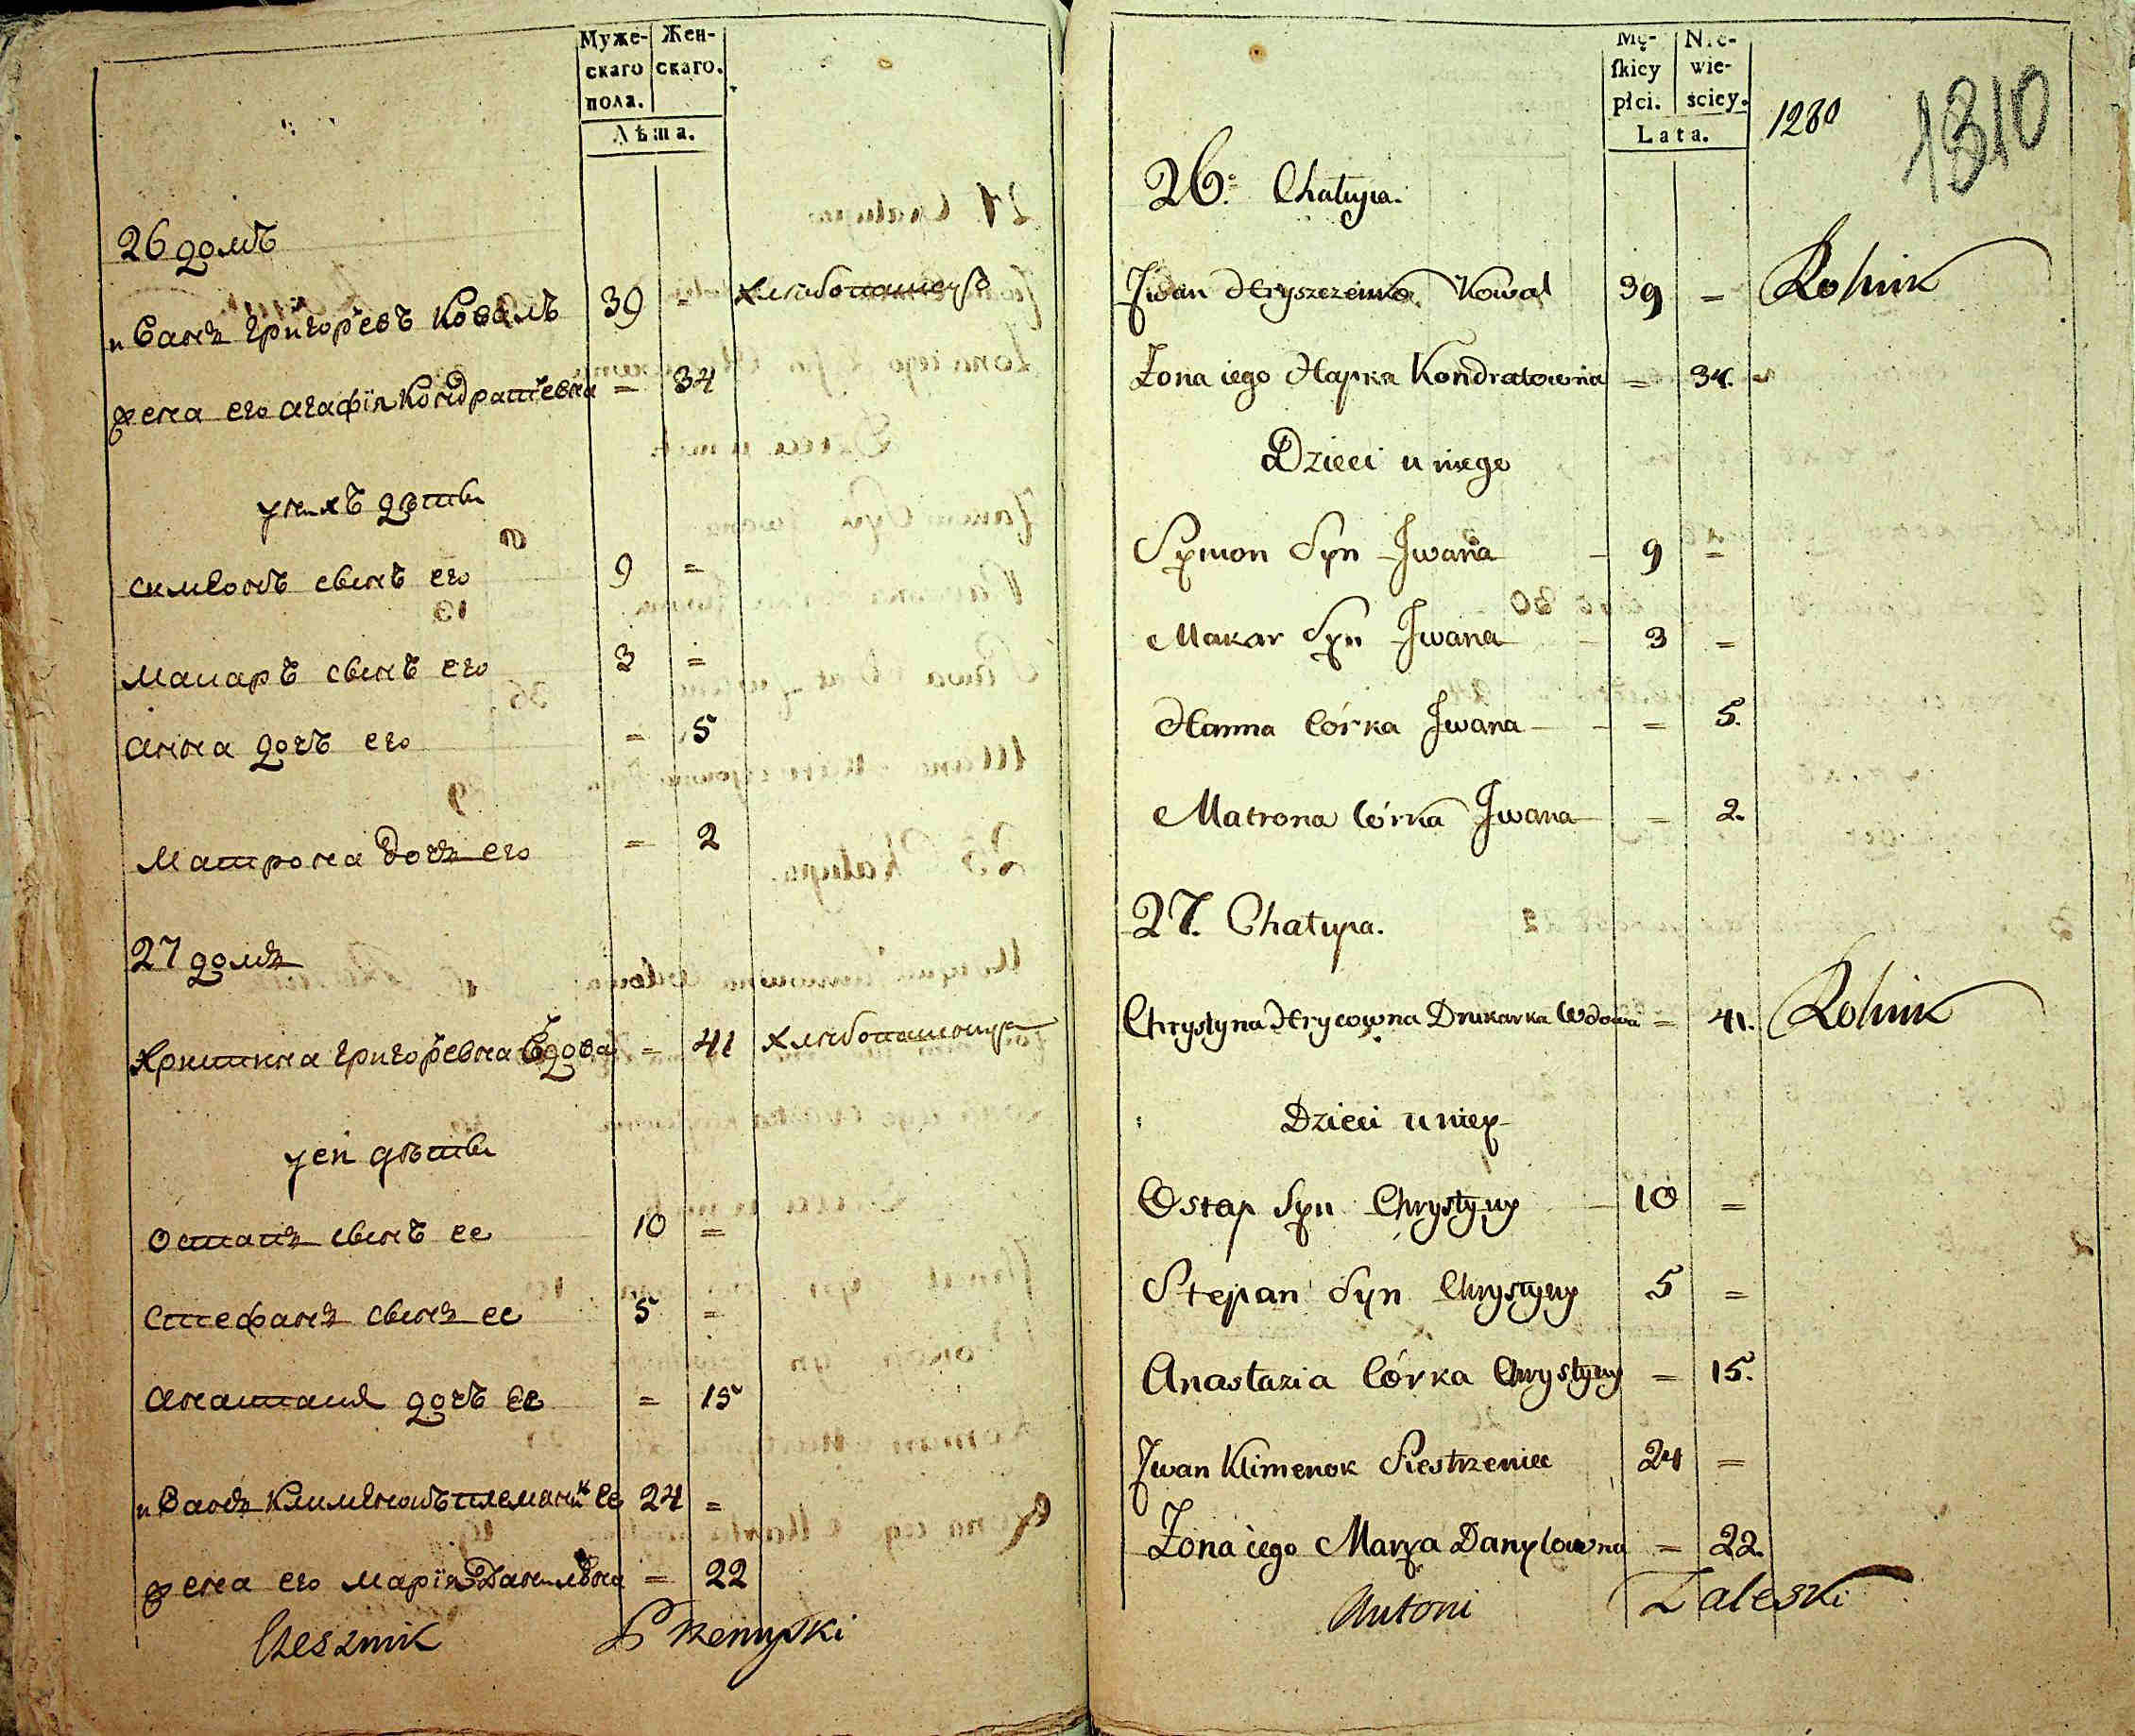 Муже- Жен-
скаго скаго.
пола.
Лѣта.
26 домъ
иванъ григорьевъ коваль 39 = хлѣбопашецъ
жена его агафiя кондратьевна = 34
у нихъ дѣти
симеонъ сынъ его 9 =
макаръ сынъ его 3 =
анна дочь его = 5
матрона дочь его = 2
27 домъ
христина григорьевна вдова = 41 хлѣбопашица
у ей дѣти
остапъ сынъ ее 10 =
стефанъ сынъ ее 5 =
анастасия дочь ее = 15
иванъ клименокъ племяник ее 24 =
жена его марiя даниловна = 22
Czesznik Przemyski
Mę- Nie-
skiey wie-
płci. sciey.
Lata.
1280
1310
26. Chałupa.
Jwan Hryszczenko Kowal 39 = Rolnik
Żona iego Hapka Kondratowna = 34.
Dzieci u niego
Symon Syn Jwana - 9 =
Makar Syn Jwana - 3 =
Hanna Córka Jwana - = 5.
Matrona Córka Jwana = 2.
27. Chałupa.
Chrystyna Hrycowna Drukarka Wdowa = 41. Rolnik
Dzieci u niey
Ostap Syn Chrystyny - 10 =
Stepan Syn Chrystyny 5 =
Anastazia Córka Chrystyny = 15.
Jwan Klimenok Siestrzeniec 24 =
Żona iego Marya Danylowna = 22.
Antoni Zaleski